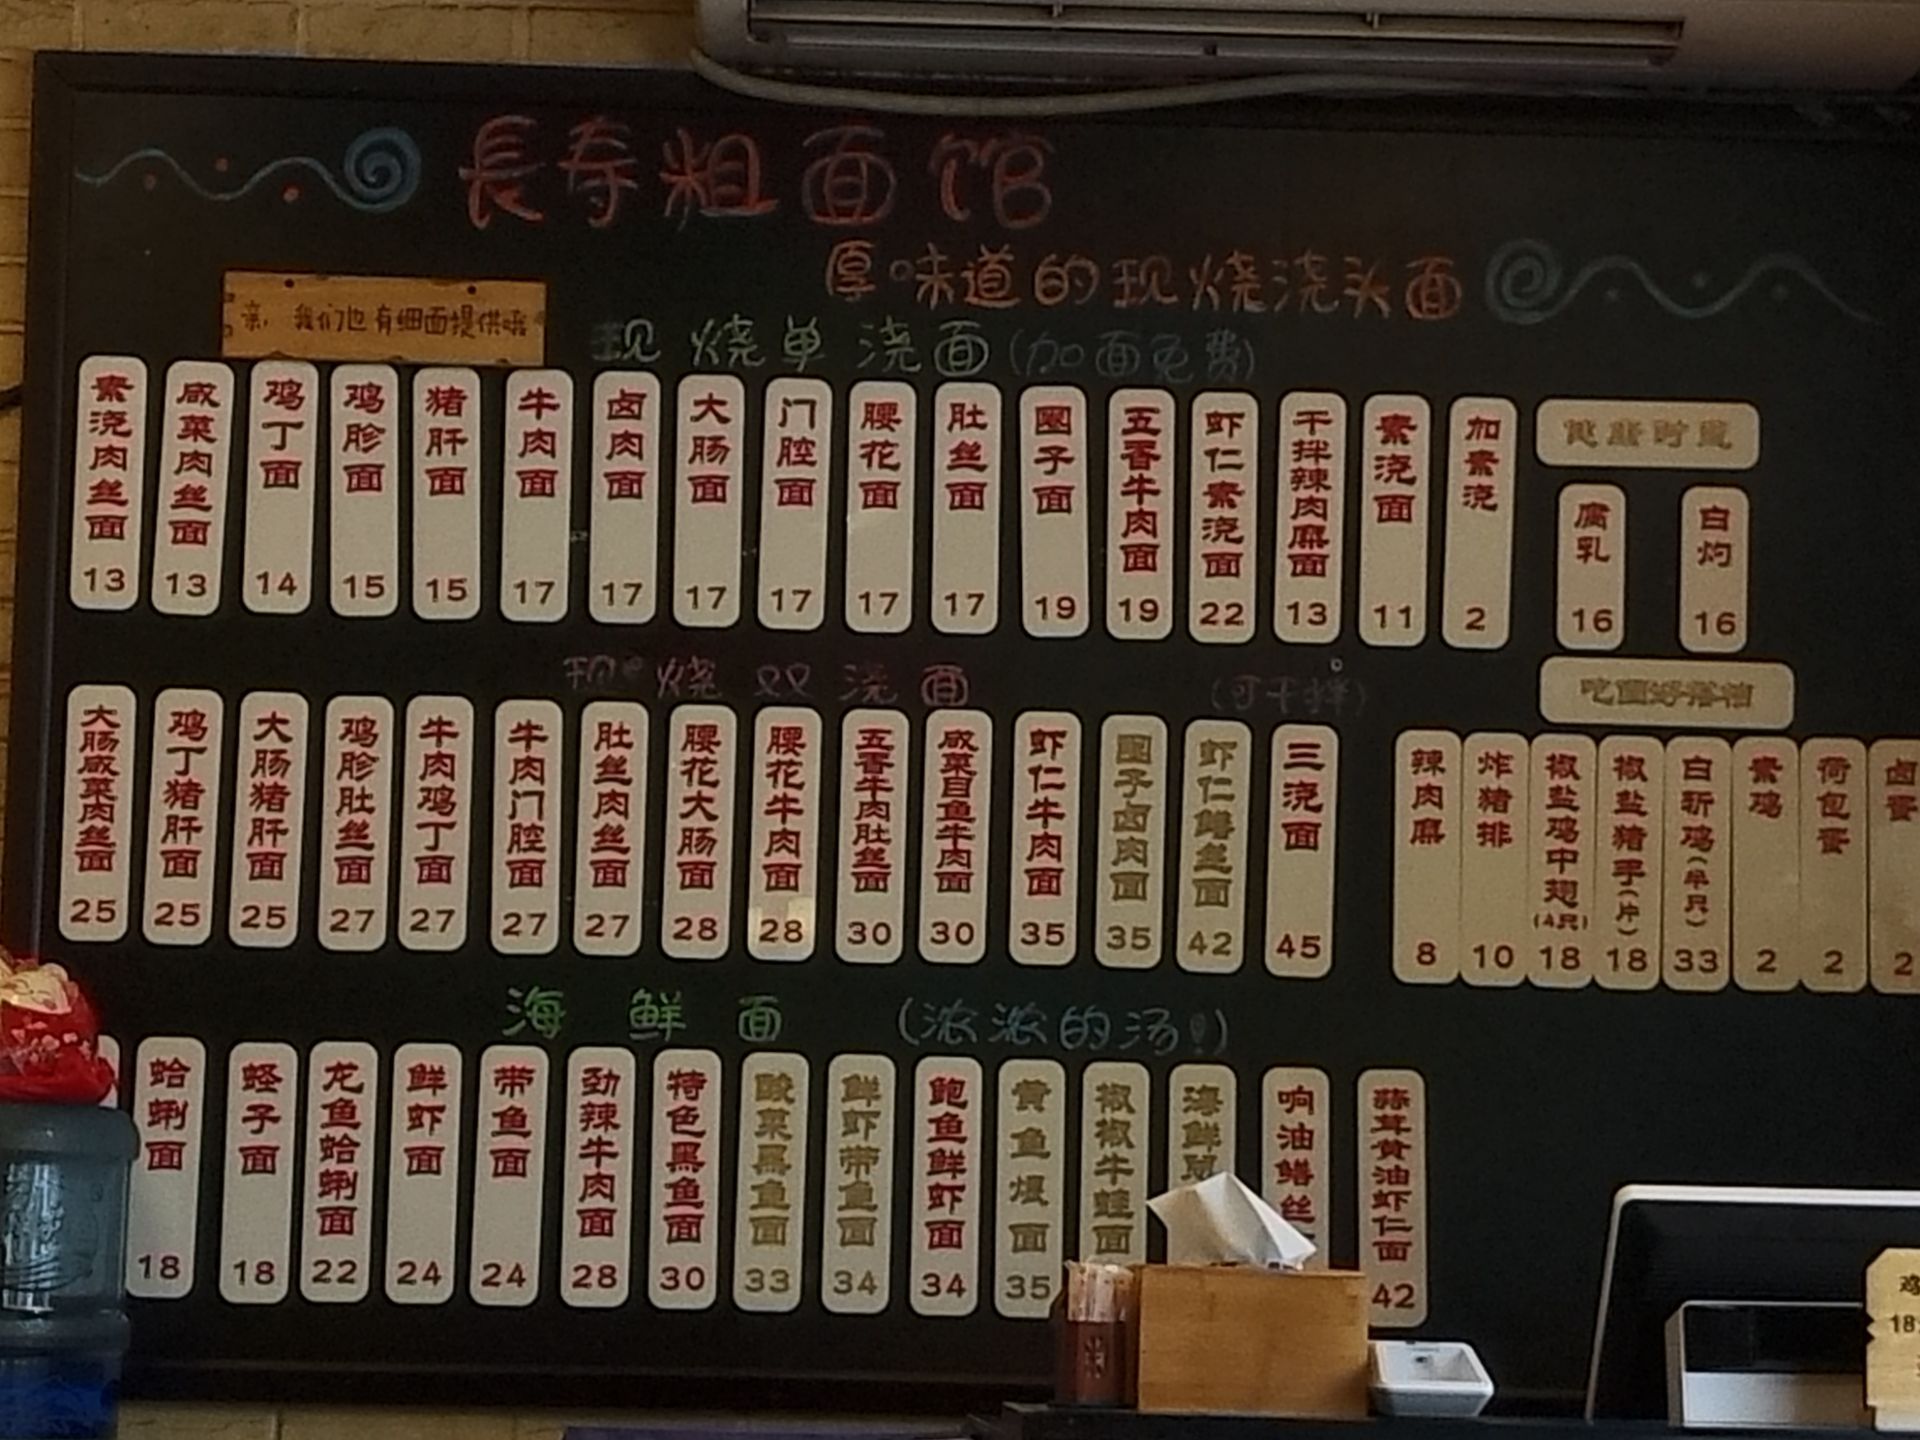 長寿粗面馆
厚味道的现烧浇头面
亲，我们也有细面提供哦
现烧单浇面(加面免费)
素浇肉丝面 13
咸菜肉丝面 13
鸡丁面 14
鸡胗面 15
猪肝面 15
牛肉面 17
卤肉面 17
大肠面 17
门腔面 17
腰花面 17
肚丝面 17
圈子面 19
五香牛肉面 19
虾仁素浇面 22
干拌辣肉麻面 13
素浇面 11
加素浇 2
健康时蔬
腐乳 16
白灼 16
现烧双浇面 (可干拌)
大肠咸菜肉丝面 25
鸡丁猪肝面 25
大肠猪肝面 25
鸡胗肚丝面 27
牛肉鸡丁面 27
牛肉门腔面 27
肚丝肉丝面 27
腰花大肠面 28
腰花牛肉面 28
五香牛肉肚丝面 30
咸菜目鱼牛肉面 30
虾仁牛肉面 35
圈子卤肉面 35
虾仁鳝丝面 42
三浇面 45
吃面好搭档
辣肉麻 8
炸猪排 10
椒盐鸡中翅(4只) 18
椒盐猪手(片) 18
白斩鸡(半只) 33
素鸡 2
荷包蛋 2
卤蛋 2
海鲜面 (浓浓的汤!)
蛤蜊面 18
蛏子面 18
龙鱼蛤蜊面 22
鲜虾面 24
带鱼面 24
劲辣牛肉面 28
特色黑鱼面 30
酸菜黑鱼面 33
鲜虾带鱼面 34
鲍鱼鲜虾面 34
黄鱼煨面 35
椒椒牛蛙面
海鲜
响油鳝丝
蒜茸黄油虾仁面 42
18